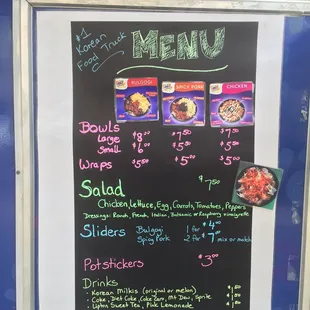 #1
Korean
Food Truck
MENU
BULGOGI
SPICY PORK
CHICKEN
Bowls
Large $8.00 $7.50 $7.50
Small $6.00 $5.50 $5.50
Wraps $5.50 $5.00 $5.00
Salad $7.50
Chicken, Lettuce, Egg, Carrots, Tomatoes, Peppers
Dressings: Ranch, French, Italian, Balsamic or Raspberry vinaigrette
Sliders Bulgogi 1 for $4.00
Spicy Pork 2 for $7.00 mix or match
Potstickers $3.00
Drinks
• Korean Milkis (original or melon)
• Coke, Diet Coke, Mt Dew, Sprite
• Lipton Sweet Tea, Pink Lemonade